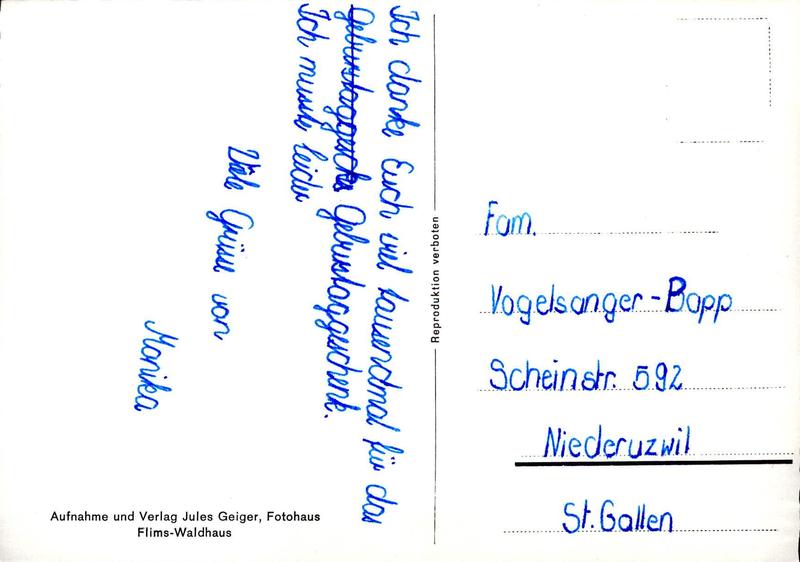 Ich danke Euch viel tausendmal für das
Geburstaggesche Geburstaggeschenk.
Ich musste leider
Viele Grüsse von
Monika
Aufnahme und Verlag Jules Geiger, Fotohaus
Flims-Waldhaus
Reproduktion verboten
Fam.
Vogelsanger-Bopp
Scheinstr. 592
Niederuzwil
St. Gallen